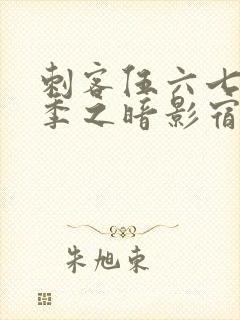 刺客伍六七
季之暗影宿
朱旭东